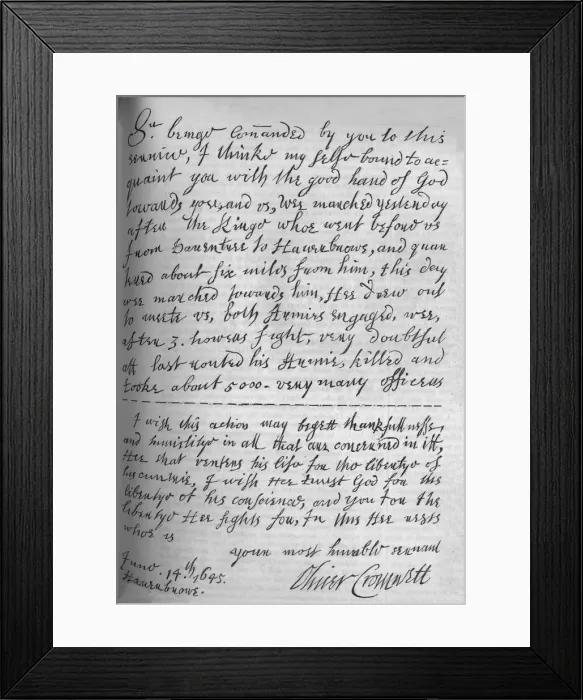 Sr. beinge com̄anded by you to this
service, I thinke my selfe bound to ac=
quaint you with the good hand of God
towards you, and vs, Wee marched yesterday
after the Kinge whoe went before vs
from Dauentree to Hauerbrowe, and quar
tered about six miles from him, this day
wee marched towards him, Hee drew out
to meete vs, both Armies engaged, wee,
after 3. howers fight, very doubtful
att last routed his Armie, killed and
tooke about 5000. very many officers
I wish this action may begett thankfullnesse,
and humilitye in all that are concerned in itt,
Hee that venters his life for the libertye of
his cuntrie, I wish Hee trust God for the
libertye of his conscience, and you for the
libertye Hee fights for, In this Hee rests
whoe is
your most humble servant
June. 14.th 1645.
Hauerbrowe.
Oliver Cromwell